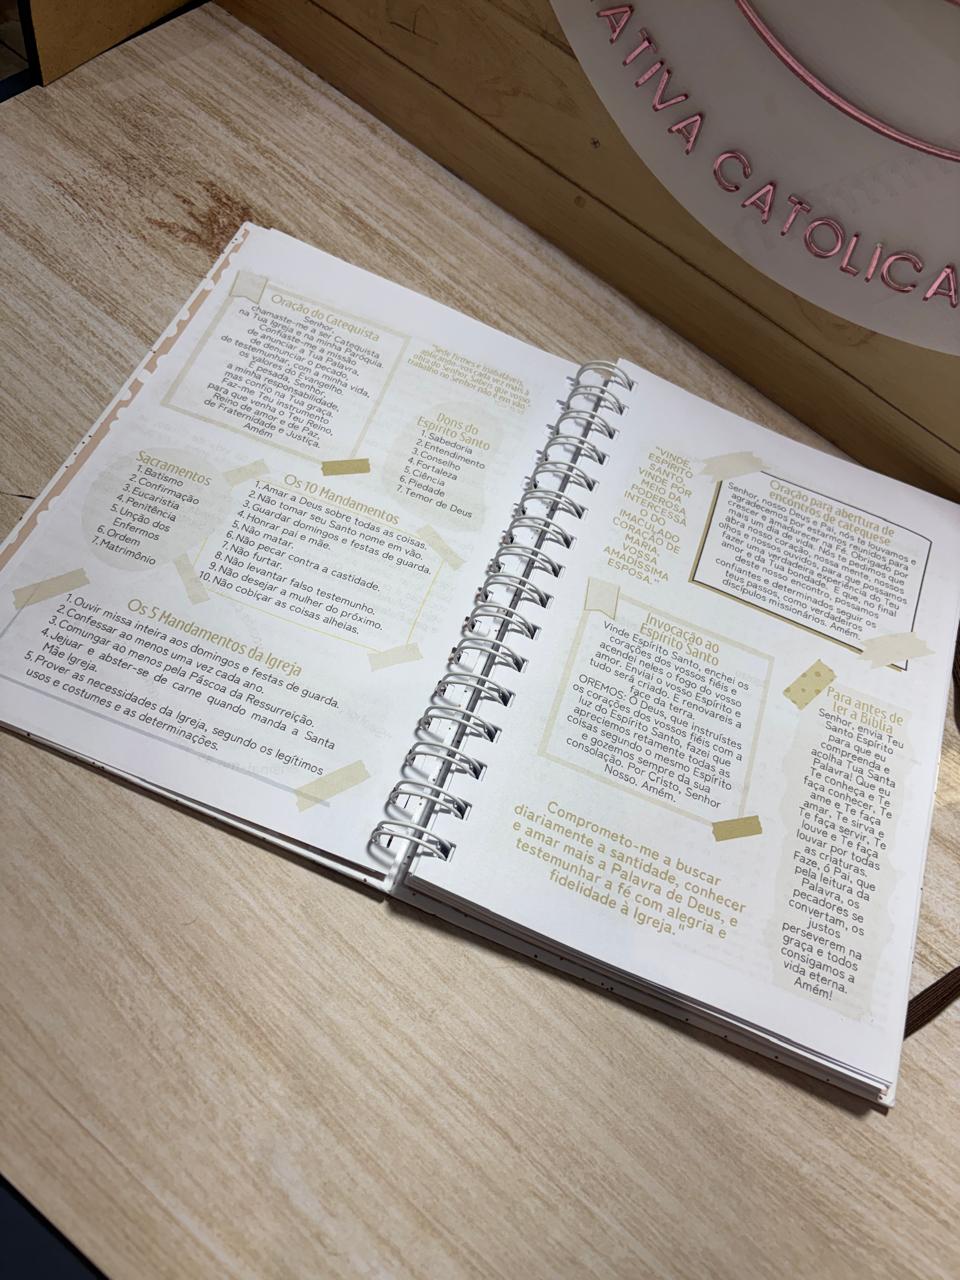 ATIVA CATOLICA
Oração do Catequista
Senhor,
chamaste-me a ser Catequista
na Tua Igreja e na minha Paróquia.
Confiaste-me a missão
de anunciar a Tua Palavra,
de denunciar o pecado,
de testemunhar, com a minha vida,
os valores do Evangelho.
É pesada, Senhor,
a minha responsabilidade,
mas confio na Tua graça.
Faz-me Teu instrumento
para que venha o Teu Reino,
Reino de amor e de Paz,
de Fraternidade e Justiça.
Amém
"Sede firmes e inabaláveis,
aplicando-vos cada vez mais à
obra do Senhor. Sabeis que vosso
trabalho no Senhor não é em vão."
Dons do
Espírito Santo
1. Sabedoria
2. Entendimento
3. Conselho
4. Fortaleza
5. Ciência
6. Piedade
7. Temor de Deus
Sacramentos
1. Batismo
2. Confirmação
3. Eucaristia
4. Penitência
5. Unção dos
Enfermos
6. Ordem
7. Matrimônio
Os 10 Mandamentos
1. Amar a Deus sobre todas as coisas.
2. Não tomar seu Santo nome em vão.
3. Guardar domingos e festas de guarda.
4. Honrar pai e mãe.
5. Não matar.
6. Não pecar contra a castidade.
7. Não furtar.
8. Não levantar falso testemunho.
9. Não desejar a mulher do próximo.
10. Não cobiçar as coisas alheias.
Os 5 Mandamentos da Igreja
1. Ouvir missa inteira aos domingos e festas de guarda.
2. Confessar ao menos uma vez cada ano.
3. Comungar ao menos pela Páscoa da Ressurreição.
4. Jejuar e abster-se de carne quando manda a Santa
Mãe Igreja.
5. Prover as necessidades da Igreja, segundo os legítimos
usos e costumes e as determinações.
"VINDE,
ESPÍRITO
SANTO,
VINDE POR
MEIO DA
PODEROSA
INTERCESSÃ
O DO
IMACULADO
CORAÇÃO DE
MARIA,
VOSSA
AMADÍSSIMA
ESPOSA."
Oração para abertura de
encontros de catequese
Senhor, nosso Deus e Pai, nós te louvamos e
agradecemos por estarmos reunidos para
crescer e amadurecer na Fé. Obrigado por
mais um dia de vida. Nós te pedimos que
abra nosso coração, nossa mente, nossos
olhos e nossos ouvidos, para que possamos
fazer uma verdadeira experiência do Teu
amor e da Tua bondade. E que, no final
deste nosso encontro, possamos
confiantes e determinados seguir os
teus passos, como verdadeiros
discípulos missionários. Amém.
Invocação ao
Espírito Santo
Vinde Espírito Santo, enchei os
corações dos vossos fiéis e
acendei neles o fogo do vosso
amor. Enviai o vosso Espírito e
tudo será criado. E renovareis a
face da terra.
OREMOS: Ó Deus, que instruístes
os corações dos vossos fiéis com a
luz do Espírito Santo, fazei que
apreciemos retamente todas as
coisas segundo o mesmo Espírito
e gozemos sempre da sua
consolação. Por Cristo, Senhor
Nosso. Amém.
Para antes de
ler a Bíblia
Senhor, envia Teu
Santo Espírito
para que eu
compreenda e
acolha Tua Santa
Palavra! Que eu
Te conheça e Te
faça conhecer, Te
ame e Te faça
amar, Te sirva e
Te faça servir, Te
louve e Te faça
louvar por todas
as criaturas.
Faze, ó Pai, que
pela leitura da
Palavra, os
pecadores se
convertam, os
justos
perseverem na
graça e todos
consigamos a
vida eterna.
Amém!
Comprometo-me a buscar
diariamente a santidade, conhecer
e amar mais a Palavra de Deus, e
testemunhar a fé com alegria e
fidelidade à Igreja."